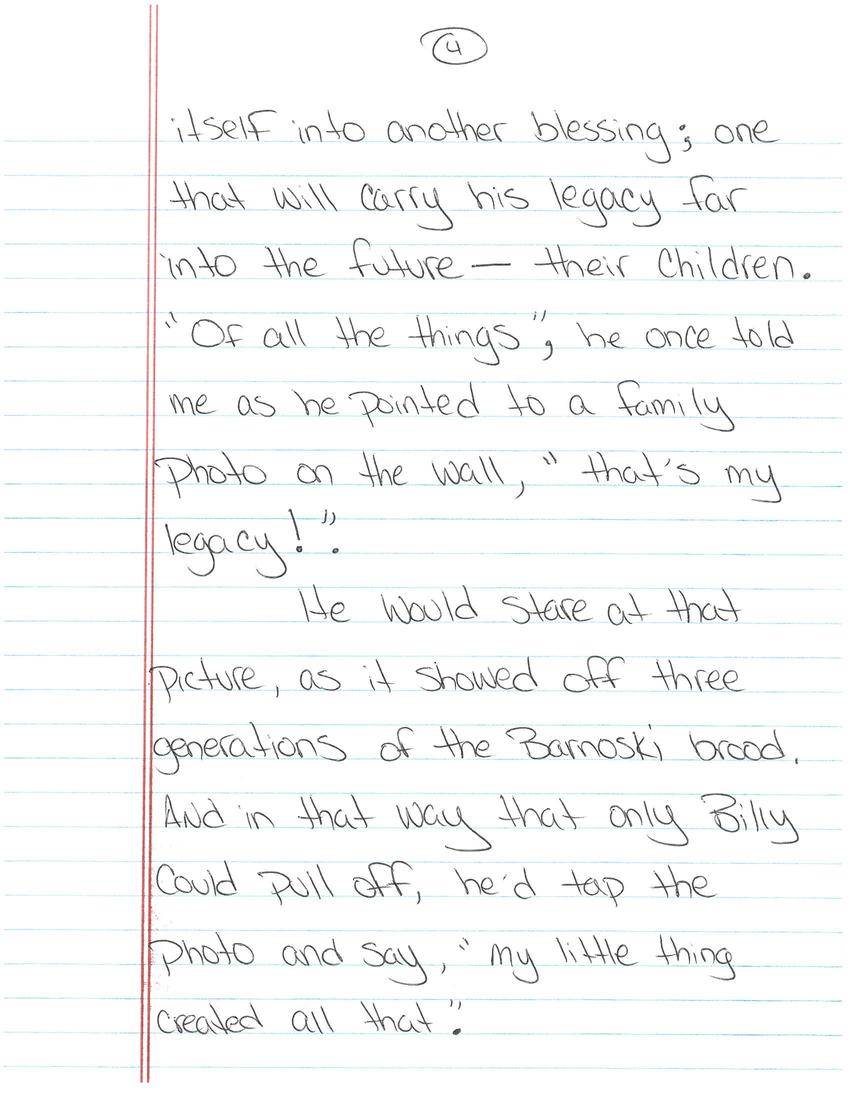 4
itself into another blessing; one
that will carry his legacy far
into the future — their children.
"Of all the things", he once told
me as he pointed to a family
photo on the wall, "that's my
legacy!".
He would stare at that
picture, as it showed off three
generations of the Barnoski brood.
And in that way that only Billy
could pull off, he'd tap the
photo and say, "my little thing
created all that".